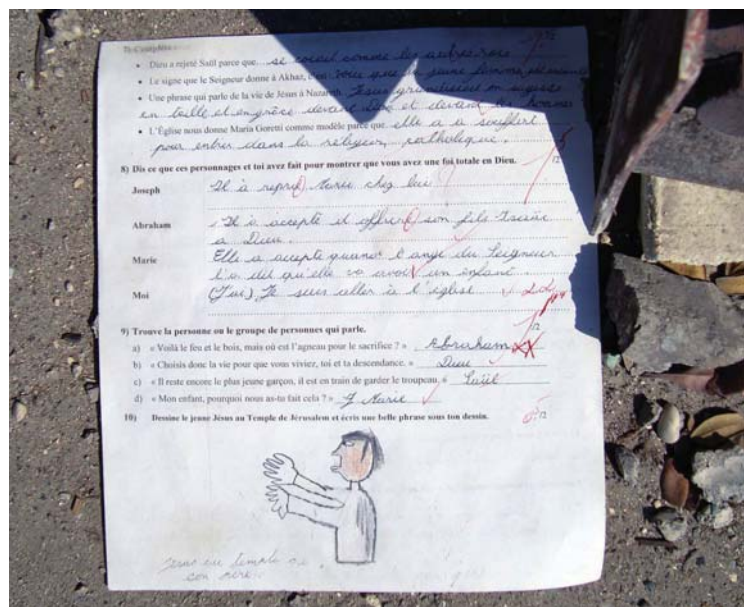 7) Complète :
• Dieu a rejeté Saül parce que
• Le signe que le Seigneur donne à Akhaz, c'est
• Une phrase qui parle de la vie de Jésus à Nazareth. Jésus grandissait en sagesse
en taille et en grâce devant Dieu et devant les hommes
• L'Église nous donne Maria Goretti comme modèle parce que elle a a souffert
pour entrer dans la religion catholique.
8) Dis ce que ces personnages et toi avez fait pour montrer que vous avez une foi totale en Dieu.
Joseph Il à repris Marie chez lui
Abraham Il à accepté d'offrire son fils
a Dieu.
Marie Elle a accepté quand l'ange du Seigneur
l'a dit qu'elle va avoir un enfant.
Moi (J'ai) Je suis aller à l'église
/12
9) Trouve la personne ou le groupe de personnes qui parle.
a) « Voilà le feu et le bois, mais où est l'agneau pour le sacrifice ? » Abraham
b) « Choisis donc la vie pour que vous viviez, toi et ta descendance. » Dieu
c) « Il reste encore le plus jeune garçon, il est en train de garder le troupeau. »
d) « Mon enfant, pourquoi nous as-tu fait cela ? » Marie
10) Dessine le jeune Jésus au Temple de Jérusalem et écris une belle phrase sous ton dessin.
/12
Jésus au temple de
son père.